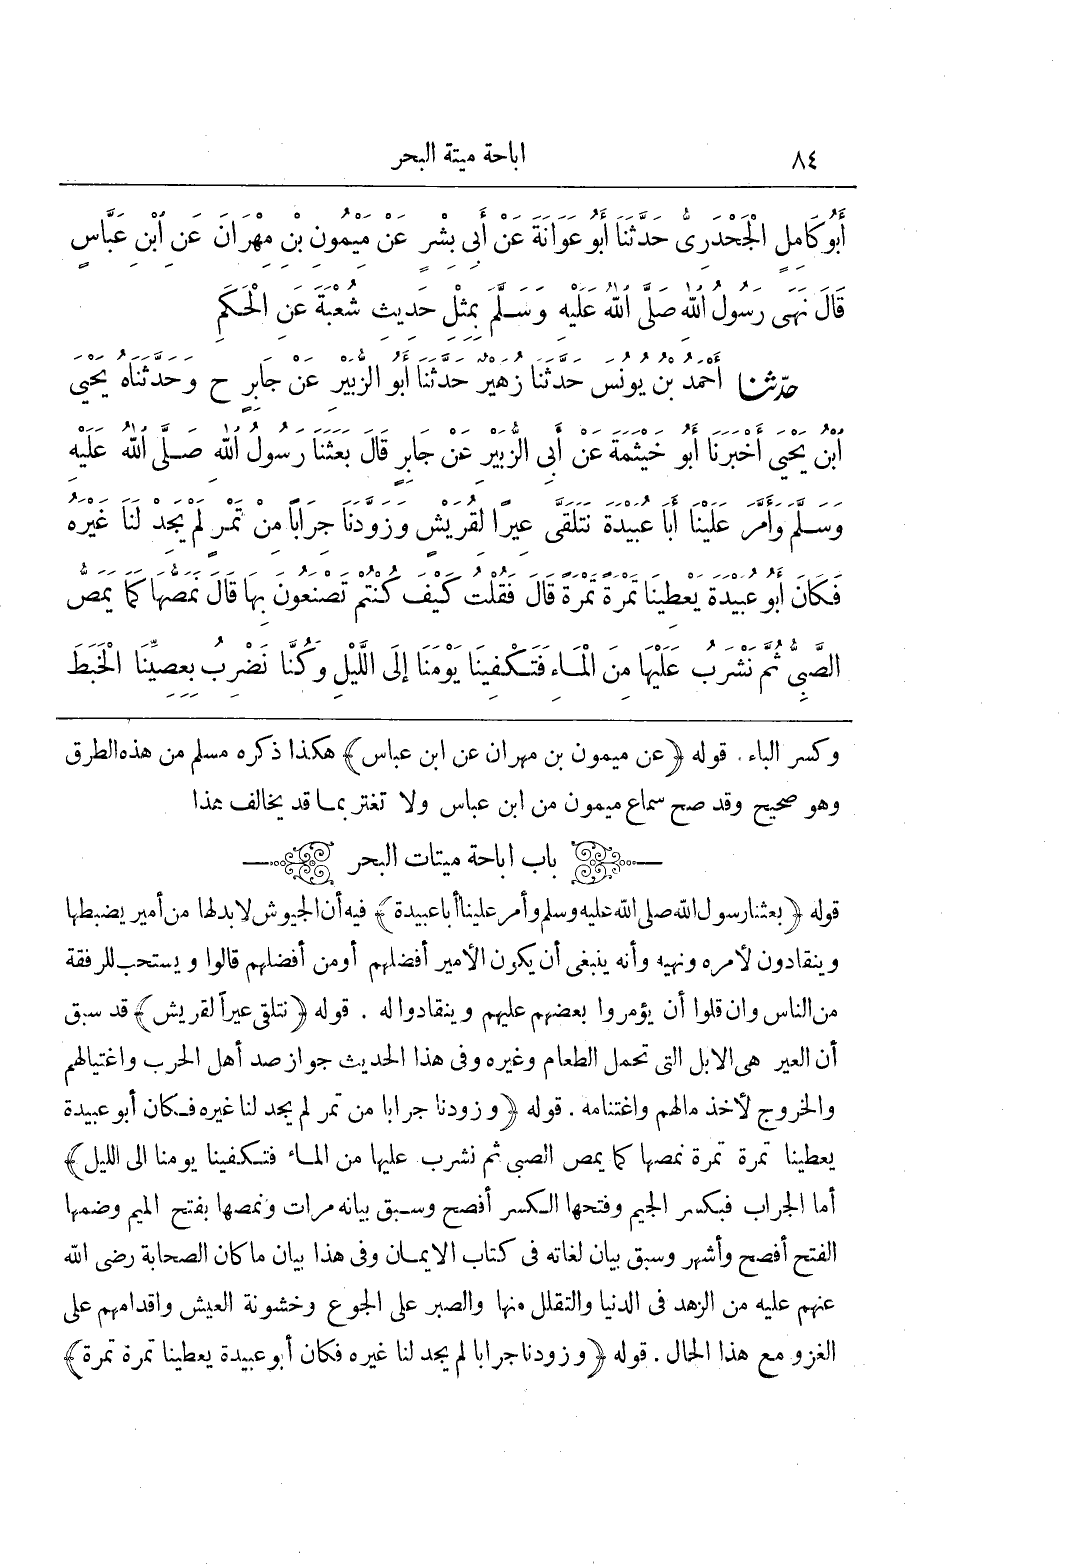 ٨٤ اباحة ميتة البحر
أَبُو كَامِلٍ الْجَحْدَرِىُّ حَدَّثَنَا أَبُو عَوَانَةَ عَنْ أَبِى بِشْرٍ عَنْ مَيْمُونِ بْنِ مِهْرَانَ عَنِ ابْنِ عَبَّاسٍ
قَالَ نَهَى رَسُولُ اللهِ صَلَّى اللهُ عَلَيْهِ وَسَلَّمَ بِمِثْلِ حَدِيثِ شُعْبَةَ عَنِ الْحَكَمِ
حدّثنا أَحْمَدُ بْنُ يُونُسَ حَدَّثَنَا زُهَيْرٌ حَدَّثَنَا أَبُو الزُّبَيْرِ عَنْ جَابِرٍ ح وَحَدَّثَنَاهُ يَحْيَى
ابْنُ يَحْيَى أَخْبَرَنَا أَبُو خَيْثَمَةَ عَنْ أَبِى الزُّبَيْرِ عَنْ جَابِرٍ قَالَ بَعَثَنَا رَسُولُ اللهِ صَلَّى اللهُ عَلَيْهِ
وَسَلَّمَ وَأَمَّرَ عَلَيْنَا أَبَا عُبَيْدَةَ نَتَلَقَّى عِيرًا لِقُرَيْشٍ وَزَوَّدَنَا جِرَابًا مِنْ تَمْرٍ لَمْ يَجِدْ لَنَا غَيْرَهُ
فَكَانَ أَبُو عُبَيْدَةَ يُعْطِينَا تَمْرَةً تَمْرَةً قَالَ فَقُلْتُ كَيْفَ كُنْتُمْ تَصْنَعُونَ بِهَا قَالَ نَمَصُّهَا كَمَا يَمَصُّ
الصَّبِىُّ ثُمَّ نَشْرَبُ عَلَيْهَا مِنَ الْمَاءِ فَتَكْفِينَا يَوْمَنَا إِلَى اللَّيْلِ وَكُنَّا نَضْرِبُ بِعِصِيِّنَا الْخَبَطَ
وكسر الباء . قوله ﴿عن ميمون بن مهران عن ابن عباس﴾ هكذا ذكره مسلم من هذه الطرق
وهو صحيح وقد صح سماع ميمون من ابن عباس ولا تغتر بما قد يخالف هذا
باب اباحة ميتات البحر
قوله ﴿بعثنا رسول الله صلى الله عليه وسلم وأمر علينا أبا عبيدة﴾ فيه أن الجيوش لابد لها من أمير يضبطها
وينقادون لأمره ونهيه وأنه ينبغى أن يكون الأمير أفضلهم أو من أفضلهم قالوا ويستحب للرفقة
من الناس وان قلوا أن يؤمروا بعضهم عليهم وينقادوا له . قوله ﴿نتلقى عيراً لقريش﴾ قد سبق
أن العير هى الابل التى تحمل الطعام وغيره وفى هذا الحديث جواز صد أهل الحرب واغتيالهم
والخروج لأخذ مالهم واغتنامه . قوله ﴿وزودنا جرابا من تمر لم يجد لنا غيره فكان أبو عبيدة
يعطينا تمرة تمرة نمصها كما يمص الصبى ثم نشرب عليها من الماء فتكفينا يومنا الى الليل﴾
أما الجراب فبكسر الجيم وفتحها الكسر أفصح وسبق بيانه مرات ونمصها بفتح الميم وضمها
الفتح أفصح وأشهر وسبق بيان لغاته فى كتاب الايمان وفى هذا بيان ما كان الصحابة رضى الله
عنهم عليه من الزهد فى الدنيا والتقلل منها والصبر على الجوع وخشونة العيش واقدامهم على
الغزو مع هذا الحال . قوله ﴿وزودنا جرابا لم يجد لنا غيره فكان أبو عبيدة يعطينا تمرة تمرة﴾